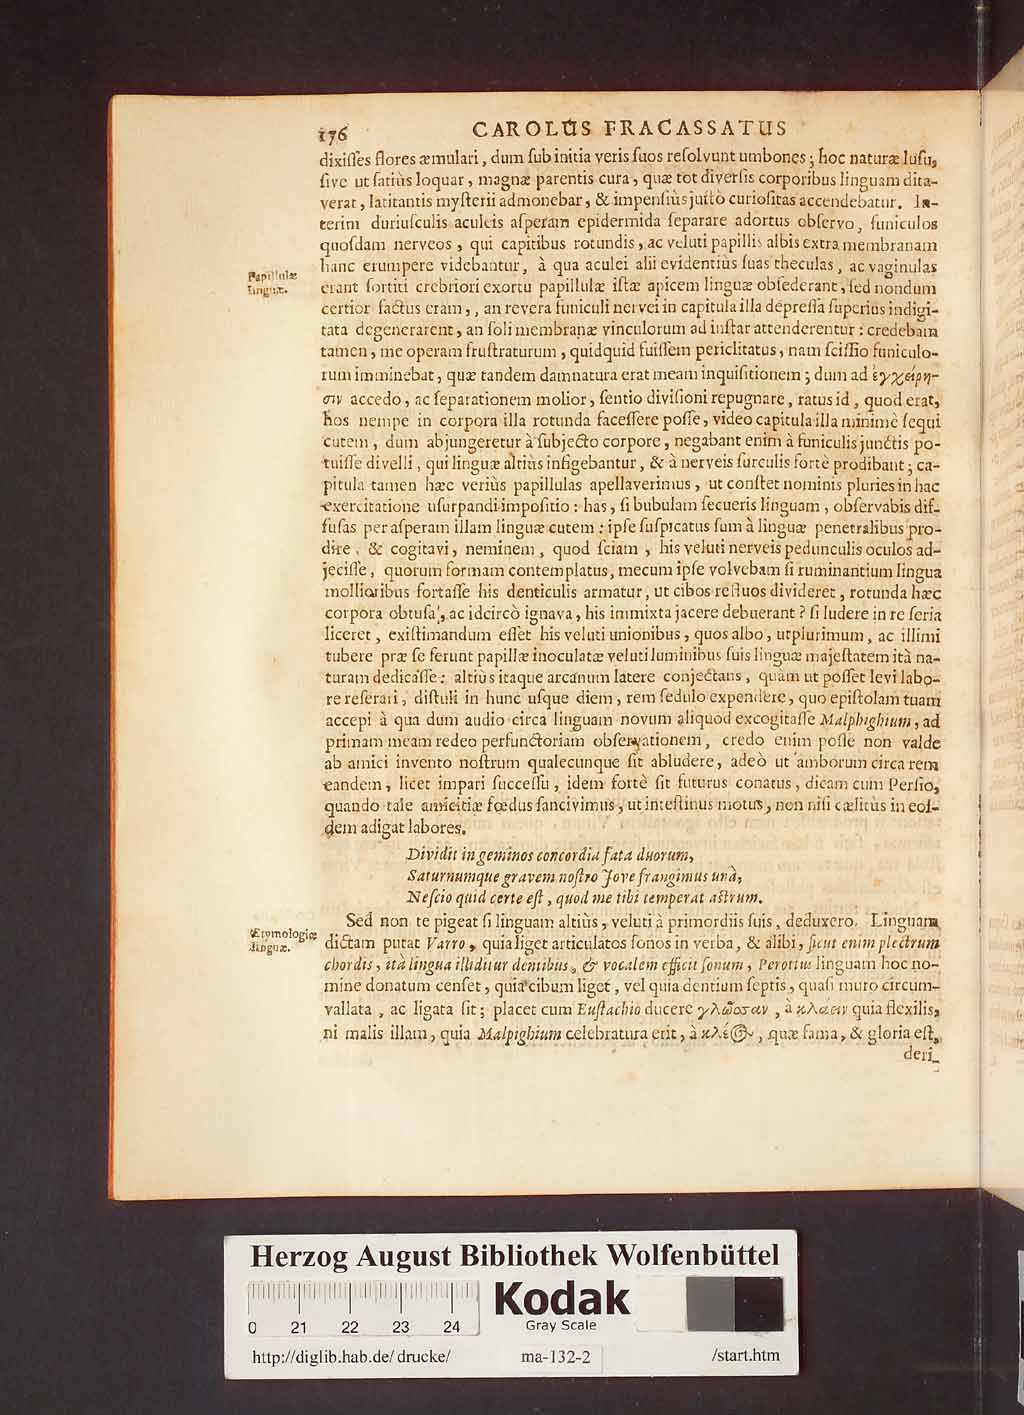 176 CAROLUS FRACASSATUS
dixiſſes flores æmulari, dum ſub initia veris ſuos reſolvunt umbones; hoc naturæ luſu,
ſive ut ſatiùs loquar, magnæ parentis cura, quæ tot diverſis corporibus linguam dita-
verat, latitantis myſterii admonebar, & impenſiùs juſtò curioſitas accendebatur. In-
terim duriuſculis aculeis aſperam epidermida ſeparare adortus obſervo, funiculos
quoſdam nerveos, qui capitibus rotundis, ac veluti papillis albis extra membranam
hanc erumpere videbantur, à qua aculei alii evidentiùs ſuas theculas, ac vaginulas
Papillulæ
linguæ.
erant ſortiti crebriori exortu papillulæ iſtæ apicem linguæ obſederant, ſed nondum
certior factus eram,, an revera funiculi nervei in capitula illa depreſſa ſuperius indigi-
tata degenerarent, an ſoli membranæ vinculorum ad inſtar attenderentur: credebam
tamen, me operam fruſtraturum, quidquid fuiſſem periclitatus, nam ſciſſio funiculo-
rum imminebat, quæ tandem damnatura erat meam inquiſitionem; dum ad ἐγχείρη-
σιν accedo, ac ſeparationem molior, ſentio diviſioni repugnare, ratus id, quod erat,
hos nempe in corpora illa rotunda faceſſere poſſe, video capitula illa minimè ſequi
cutem, dum abjungeretur à ſubjecto corpore, negabant enim à funiculis junctis po-
tuiſſe divelli, qui linguæ altiùs infigebantur, & à nerveis ſurculis fortè prodibant; ca-
pitula tamen hæc veriùs papillulas apellaverimus, ut conſtet nominis pluries in hac
exercitatione uſurpandi impoſitio: has, ſi bubulam ſecueris linguam, obſervabis dif-
fuſas per aſperam illam linguæ cutem: ipſe ſuſpicatus ſum à linguæ penetralibus pro-
dire, & cogitavi, neminem, quod ſciam, his veluti nerveis pedunculis oculos ad-
jeciſſe, quorum formam contemplatus, mecum ipſe volvebam ſi ruminantium lingua
mollioribus fortaſſe his denticulis armatur, ut cibos refluos divideret, rotunda hæc
corpora obtuſa, ac idcircò ignava, his immixta jacere debuerant? ſi ludere in re ſeria
liceret, exiſtimandum eſſet his veluti unionibus, quos albo, utplurimum, ac illimi
tubere præ ſe ferunt papillæ inoculatæ veluti luminibus ſuis linguæ majeſtatem ità na-
turam dedicaſſe: altiùs itaque arcanum latere conjectans, quàm ut poſſet levi labo-
re reſerari, diſtuli in hunc uſque diem, rem ſedulo expendere, quo epiſtolam tuam
accepi à qua dum audio circa linguam novum aliquod excogitaſſe Malphighium, ad
primam meam redeo perfunctoriam obſervationem, credo enim poſſe non valde
ab amici invento noſtrum qualecunque ſit abludere, adeò ut amborum circa rem
eandem, licet impari ſucceſſu, idem fortè ſit futurus conatus, dicam cum Perſio,
quando tale amicitiæ fœdus ſancivimus, ut inteſtinus motus, non niſi cælitùs in eoſ-
dem adigat labores.
Dividit in geminos concordia fata duorum,
Saturnumque gravem noſtro Jove frangimus unà,
Neſcio quid certe eſt, quod me tibi temperat aſtrum.
Sed non te pigeat ſi linguam altiùs, veluti à primordiis ſuis, deduxero. Linguam
Etymologiæ
linguæ.
dictam putat Varro, quia liget articulatos ſonos in verba, & alibi, ſicut enim plectrum
chordis, ità lingua illiditur dentibus, & vocalem efficit ſonum, Perotius linguam hoc no-
mine donatum cenſet, quia cibum liget, vel quia dentium ſeptis, quaſi muro circum-
vallata, ac ligata ſit; placet cum Euſtachio ducere γλῶσσαν, à κλάειν quia flexilis,
ni malis illam, quia Malpighium celebratura erit, à κλέος, quæ fama, & gloria eſt,
deri-
Herzog August Bibliothek Wolfenbüttel
0 21 22 23 24
Kodak
Gray Scale
http://diglib.hab.de/drucke/ ma-132-2 /start.htm